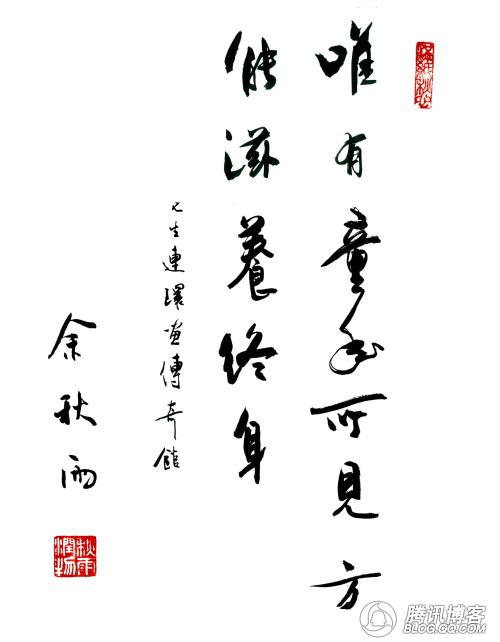 唯有童年所見方
能滋養終身
生連環畫傳奇館
余秋雨
秋雨潤物
腾讯博客
BLOG.QQ.COM